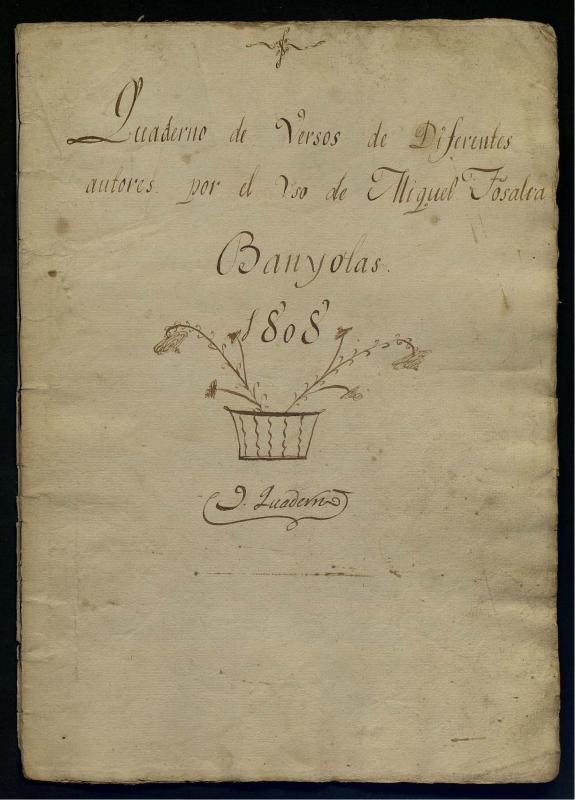 Quaderno de Versos de Diferentes
autores. por el Vso de Miquel
Banyolas.
1808
Quadern